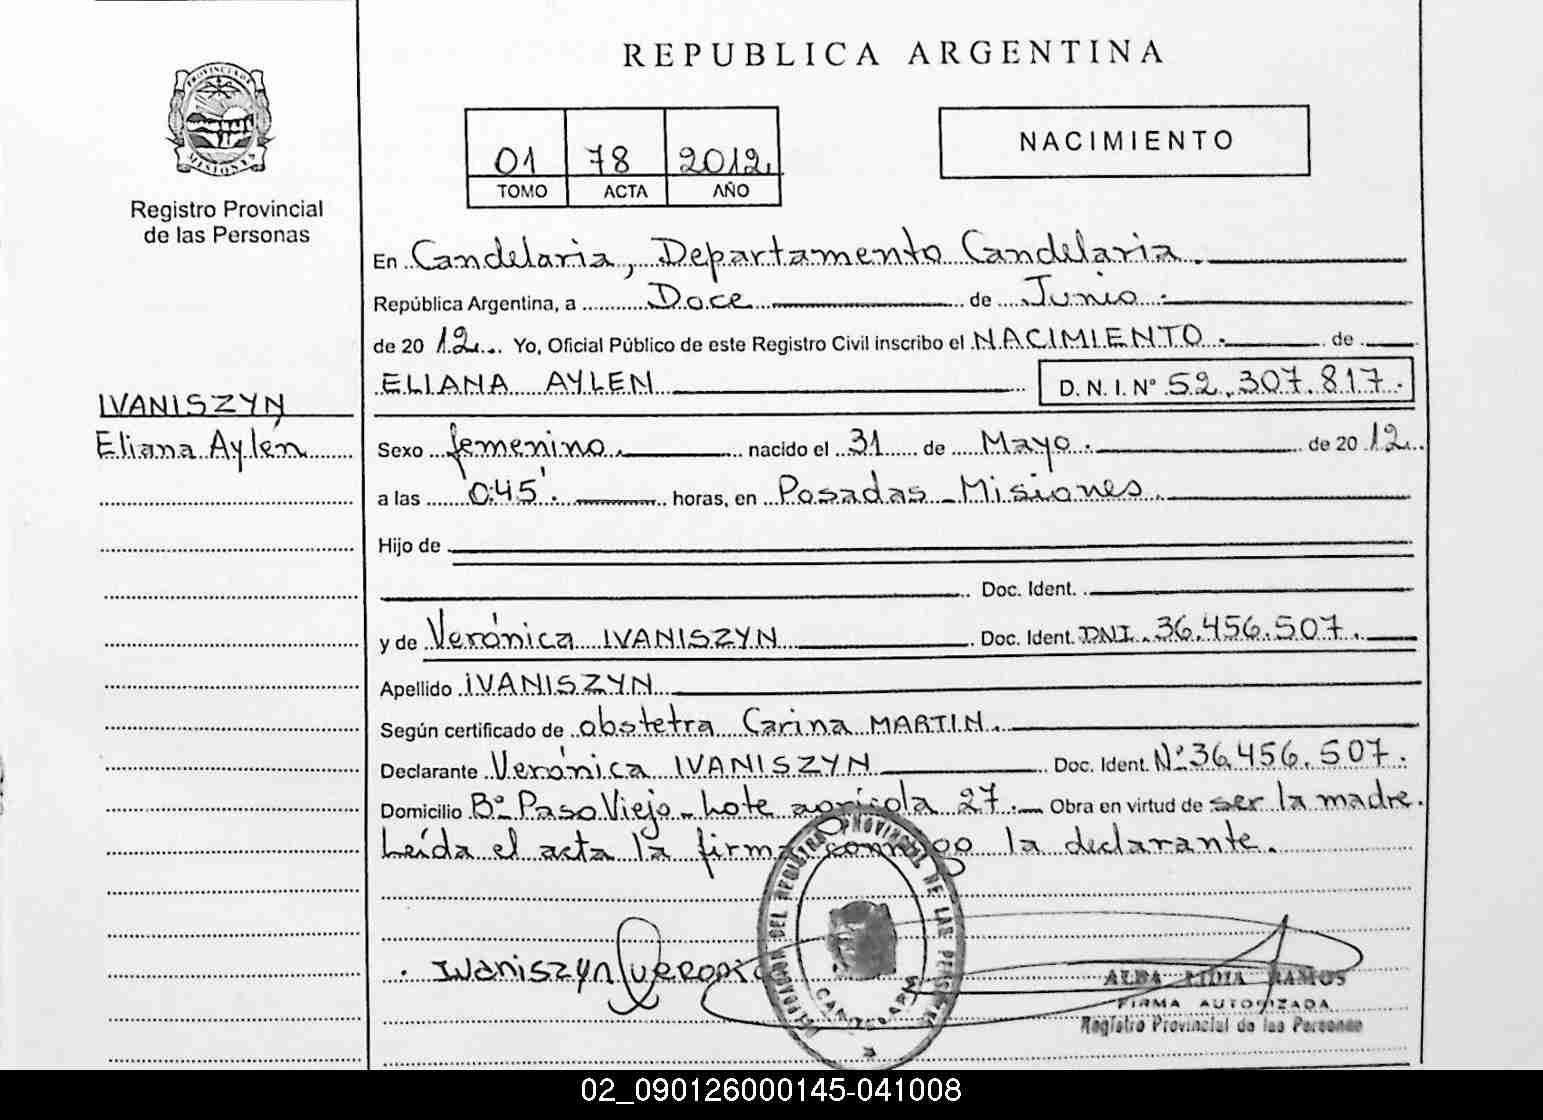 REPUBLICA ARGENTINA
PROVINCIA DE
MISIONES
Registro Provincial
de las Personas
01 78 2012.
TOMO ACTA AÑO
NACIMIENTO
En Candelaria, Departamento Candelaria.
República Argentina, a Doce de Junio.
de 2012. Yo, Oficial Público de este Registro Civil inscribo el NACIMIENTO. de
ELIANA AYLEN D. N. I. Nº 52.307.817.
IVANISZYN
Eliana Aylén
Sexo femenino. nacido el 31 de Mayo. de 2012.
a las 0:45'. horas, en Posadas - Misiones.
Hijo de
Doc. Ident.
y de Verónica IVANISZYN Doc. Ident. DNI. 36.456.507.
Apellido IVANISZYN
Según certificado de obstetra Carina MARTIN.
Declarante Verónica IVANISZYN Doc. Ident. Nº 36.456.507.
Domicilio Bº Paso Viejo - Lote agrícola 27. Obra en virtud de ser la madre.
Leída el acta la firma conmigo la declarante.
DELEGACION DEL REGISTRO PROVINCIAL DE LAS PERSONAS
CANDELARIA
Ivaniszyn
ALBA LIDIA RAMOS
FIRMA AUTORIZADA
Registro Provincial de las Personas
02_090126000145-041008